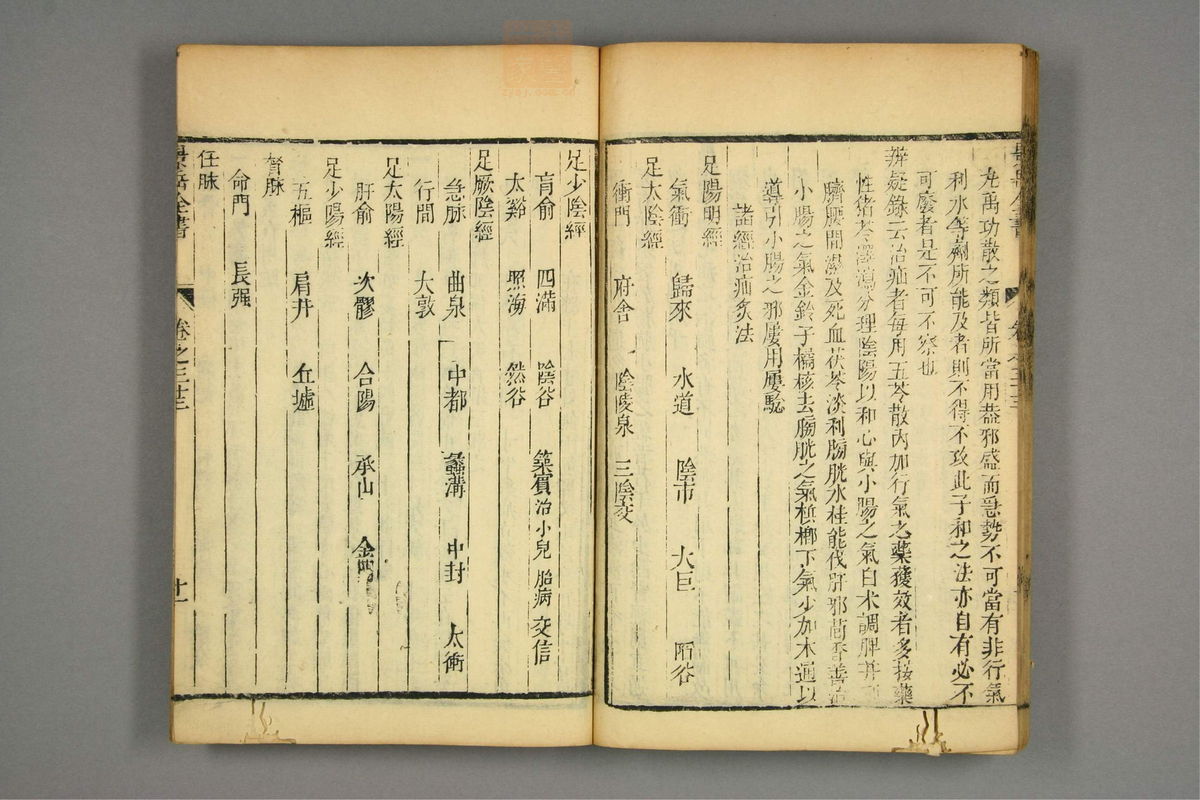 尢禹功散之類皆所當用葢邪盛而急勢不可當有非行氣
利水等劑所能及者則不得不攻此子和之法亦自有必不
可廢者是不可不察也
辨疑錄云治疝者每用五苓散內加行氣之藥獲效者多按藥
性猪苓澤瀉分理陰陽以和心與小腸之氣白术調脾并
臍腰間濕及死血茯苓淡利膀胱水桂能伐肝邪茴香善治
小腸之氣金鈴子橘核去膀胱之氣梹榔下氣少加木通以
導引小腸之邪屢用屢驗
諸經治疝灸法
足陽明經
氣衝 歸來 水道 陰市 大巨 陷谷
足太陰經
衝門 府舍 陰陵泉 三陰交
景岳全書 卷之三十三
足少陰經
肓俞 四滿 陰谷 築賔治小兒胎病 交信
太谿 照海 然谷
足厥陰經
急脉 曲泉 中都 蠡溝 中封 太衝
行間 大敦
足太陽經
肝俞 次髎 合陽 承山 金門
足少陽經
五樞 肩井 丘墟
督脉
命門 長强
任脉
景岳全書 卷之三十三 十一